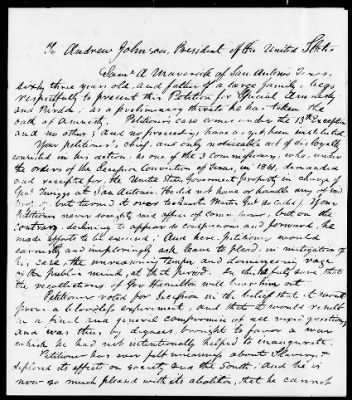 To Andrew Johnson, President of the United States.
Saml A Maverick of San Antonio Texas,
sixty three years old, and father of a large family, begs
respectfully to present this Petition for Special Amnesty
and Pardon, as a preliminary thereto he has taken the
oath of Amnesty. Petitioner's case comes under the 13th exception
and no other; and no proceedings have as yet been instituted
Your petitioner's chief, and only noticeable act of disloyalty
consisted in his action, as one of the 3 commissioners, who, under
the orders of the Secession Convention of Texas, in 1861, demanded
and accepted the United States Government property in charge of
Genl Twiggs at San Antonio. He did not have or handle any of said
but turned it over to Quarter Master Your
Petitioner never sought any office of any power, but on the
contrary, declining to appear so conspicuous and forward, he
made efforts to be excused; And here, petitioner would
earnestly and imploringly ask leave to plead in mitigation of
his case the unreasoning temper and domineering rage
of the public mind, at that period. In which he feels sure that
the recollections of Gov Hamilton will bear him out.
Petitioner voted for Secession in the belief that it would
prove a bloodless experiment, and that it would result
in a final and general compromise of all vexed questions,
and was thus by degrees, brought to favor a war
which he had not intentionally helped to inaugurate.
Petitioner has ever felt uneasiness about Slavery, &
deplored its effects on society and the South, and he is
now so much pleased with its abolition, that he cannot